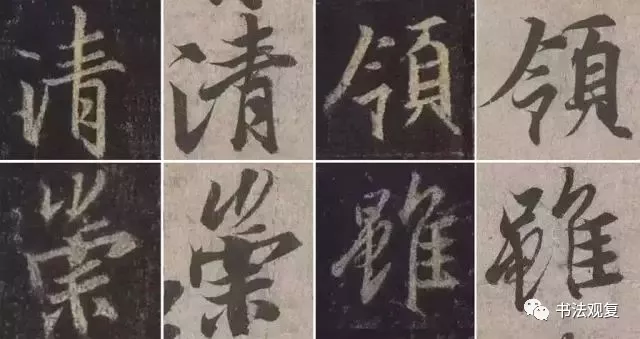 清清領領
崇崇雖雖
书法观复